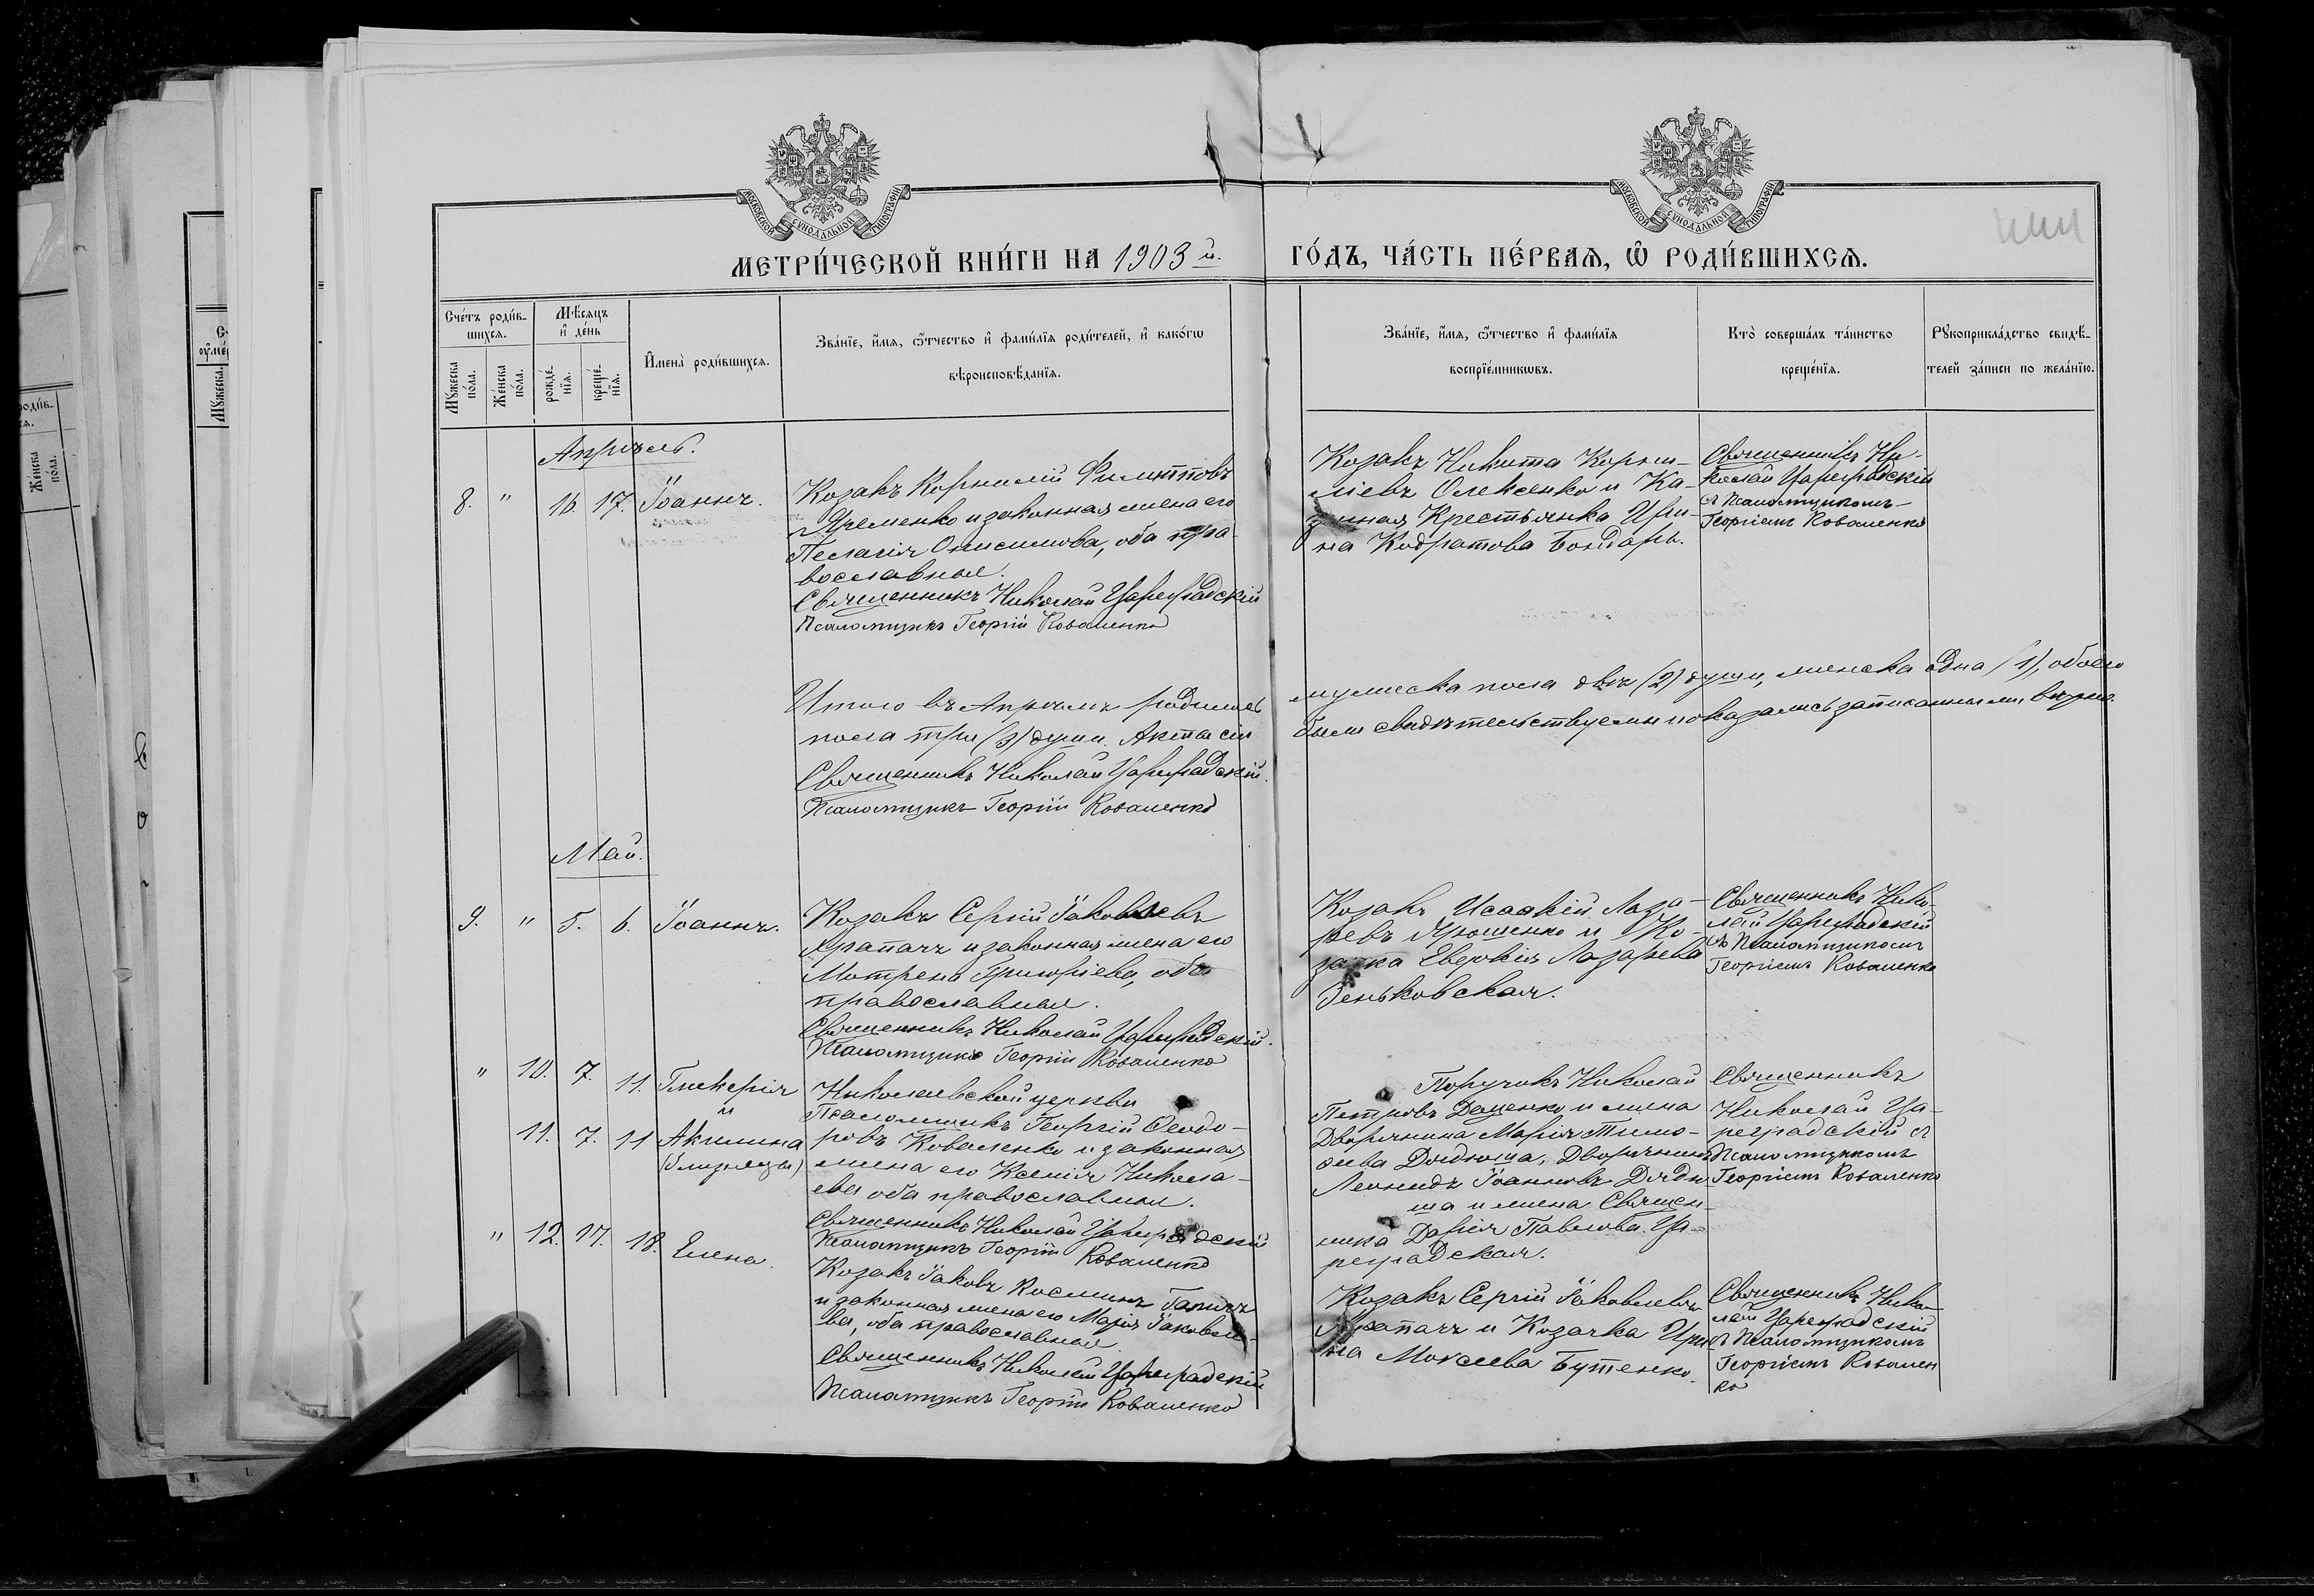 МОСКОВСКОЙ СѴНОДАЛЬНОЙ ТИПОГРАФІИ
МОСКОВСКОЙ СѴНОДАЛЬНОЙ ТИПОГРАФІИ
МЕТРИ́ЧЕСКОЙ КНИ́ГИ НА 1903й.
ГО́ДЪ, ЧА́СТЬ ПЕ́РВАѦ, Ѽ РОДИ́ВШИХСѦ.
Сче́тъ роди́в-
шихся.
Мѣ́сяцъ
и҆ де́нь
Му́жеска по́ла.
Же́нска по́ла.
рожде́-нїя.
креще́-нїя.
И҆мена̀ роди́вшихся.
Зва́нїе, и҆́мя, ѻ҆́тчество и҆ фами́лїя роди́телей, и҆ како́гѡ
вѣроисповѣ́данїя.
Зва́нїе, и҆́мя, ѻ҆́тчество и҆ фами́лїя
воспрїе́мникѡвъ.
Кто̀ соверша́лъ та́инство
креще́нїя.
Рꙋкоприкла́дство свидѣ́-
телей за́писи по жела́нїю.
Апрѣль.
8. " 16. 17. Іоаннъ.
Козакъ Корнилій Филипповъ
Яременко и законная жена его
Пелагія Онисимова, оба пра-
вославные.
Священникъ Николай Цареградскій
Псаломщикъ Георгій Коваленко
Козакъ Никита Корни-
ліевъ Олексенко и Ка-
зенная Крестьянка Ири-
на Кодратова Бондарь.
Священникъ Ни-
колай Цареградскій
съ Псаломщикомъ
Георгіемъ Коваленко
Итого въ Апрѣлѣ родилось мужеска пола двѣ (2) души, женска одна (1), обоего
пола три (3) души. Акта сіи были свидѣтельствуемы и оказались записанными вѣрно.
Священникъ Николай Цареградскій.
Псаломщикъ Георгій Коваленко
Май.
9. " 5. 6. Іоаннъ.
Козакъ Сергій Іаковлевъ
Храпачъ и законная жена его
Мотрена Григоріева, оба
православные.
Священникъ Николай Цареградскій.
Псаломщикъ Георгій Коваленко
Козакъ Исаакій Лаза-
ревъ Ярошенко и Ко-
зачка Евдокія Лазарева
Зеньковская.
Священникъ Нико-
лай Цареградскій
съ Псаломщикомъ
Георгіемъ Коваленко
" 10. 7. 11. Гликерія
и
11. 7. 11 Акилина
(близнецы)
Николаевской церкви
Псаломщикъ Георгій Ѳеодо-
ровъ Коваленко и законная
жена его Ксенія Никола-
ева оба православные.
Священникъ Николай Цареградскій
Псаломщикъ Георгій Коваленко
Поручикъ Николай
Петровъ Даценко и жена
Дворянина Марія Тимо-
ѳеева Дядюша, Дворянинъ
Леонидъ Іоанновъ Дядю-
ша и жена Священ-
ника Дарія Павлова Ца-
реградская.
Священникъ
Николай Ца-
реградскій съ
Псаломщикомъ
Георгіемъ Коваленко
" 12. 17. 18. Елена.
Козакъ Іаковъ Косминъ
и законная жена его Марія Іаковле-
ва, оба православные
Священникъ Николай Цареградскій
Псаломщикъ Георгій Коваленко
Козакъ Сергій Іаковлевъ
Храпачъ и Козачка Ири-
на Моксеева Бутенко.
Священникъ Нико-
лай Цареградскій
съ Псаломщикомъ
Георгіемъ Ковален
ко